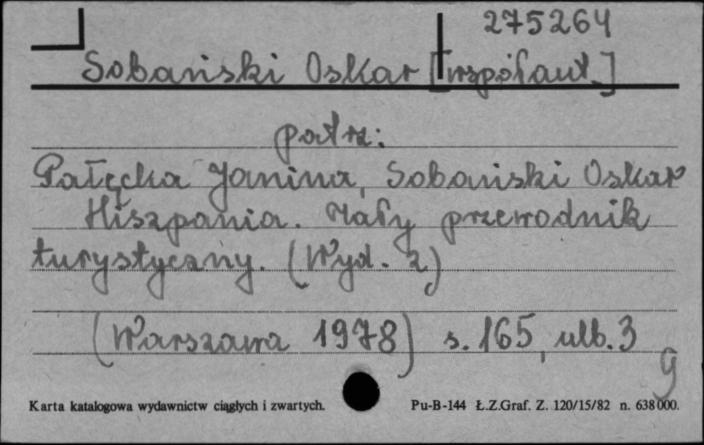 275264
Sobański Oskar [współaut.]
patrz:
Pałęcka Janina, Sobański Oskar
Hiszpania. Mały przewodnik
turystyczny. (Wyd. 2)
(Warszawa 1978) s. 165, ulb. 3
g
Karta katalogowa wydawnictw ciągłych i zwartych. Pu-B-144 Ł.Z.Graf. Z. 120/15/82 n. 638000.